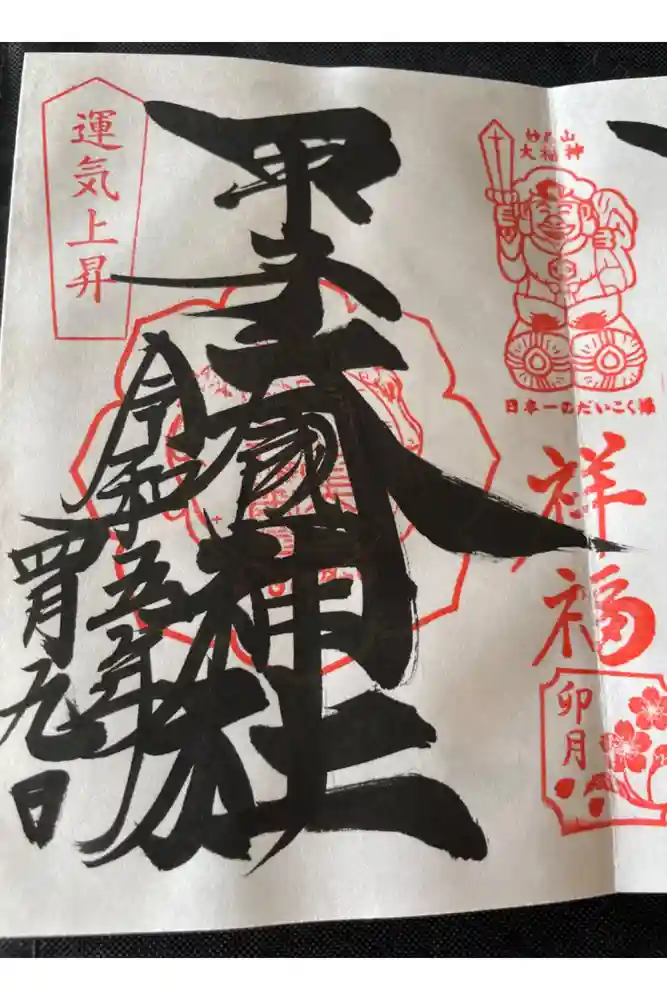 大福神
日本一のだいこく様
祥福
卯月
甲子大國神社
令和五年
四月九日
運気上昇